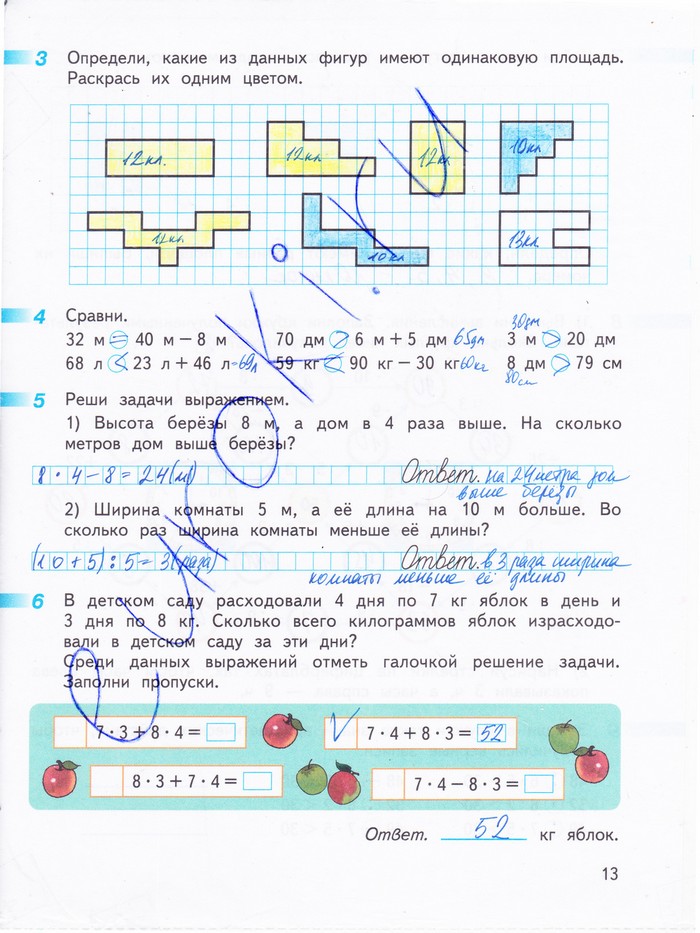 3 Определи, какие из данных фигур имеют одинаковую площадь.
Раскрась их одним цветом.
12кл. 12кл. 12кл. 10кл
12кл. 10кл. 13кл.
4 Сравни.
30дм
32 м = 40 м − 8 м 70 дм > 6 м + 5 дм 65дм 3 м > 20 дм
68 л < 23 л + 46 л=69л 59 кг < 90 кг − 30 кг 60кг 8 дм > 79 см
80см
5 Реши задачи выражением.
1) Высота берёзы 8 м, а дом в 4 раза выше. На сколько
метров дом выше берёзы?
8 · 4 − 8 = 24 (м) Ответ. на 24 метра дом
выше берёзы
2) Ширина комнаты 5 м, а её длина на 10 м больше. Во
сколько раз ширина комнаты меньше её длины?
(10+5):5=3(раза) Ответ. в 3 раза ширина
комнаты меньше её длины
6 В детском саду расходовали 4 дня по 7 кг яблок в день и
3 дня по 8 кг. Сколько всего килограммов яблок израсходо-
вали в детском саду за эти дни?
Среди данных выражений отметь галочкой решение задачи.
Заполни пропуски.
7 · 3 + 8 · 4 = V 7 · 4 + 8 · 3 = 52
8 · 3 + 7 · 4 = 7 · 4 − 8 · 3 =
Ответ. 52 кг яблок.
13